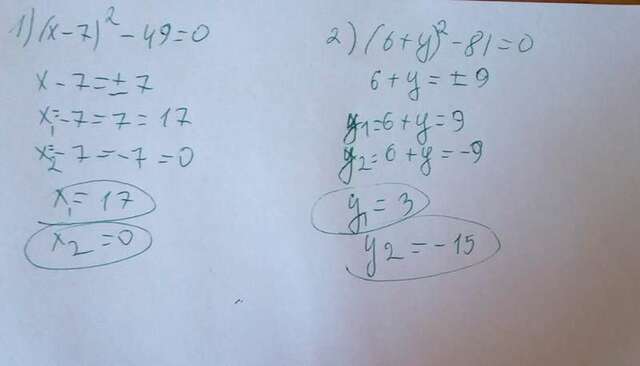 1) (x-7)² - 49=0
x - 7 = ± 7
x₁= -7 = 7 = 17
x₂= -7 = -7 = 0
x₁ = 17
x₂ = 0
2) (6+y)² - 81 = 0
6 + y = ± 9
y₁ = 6 + y = 9
y₂ = 6 + y = -9
y₁ = 3
y₂ = -15